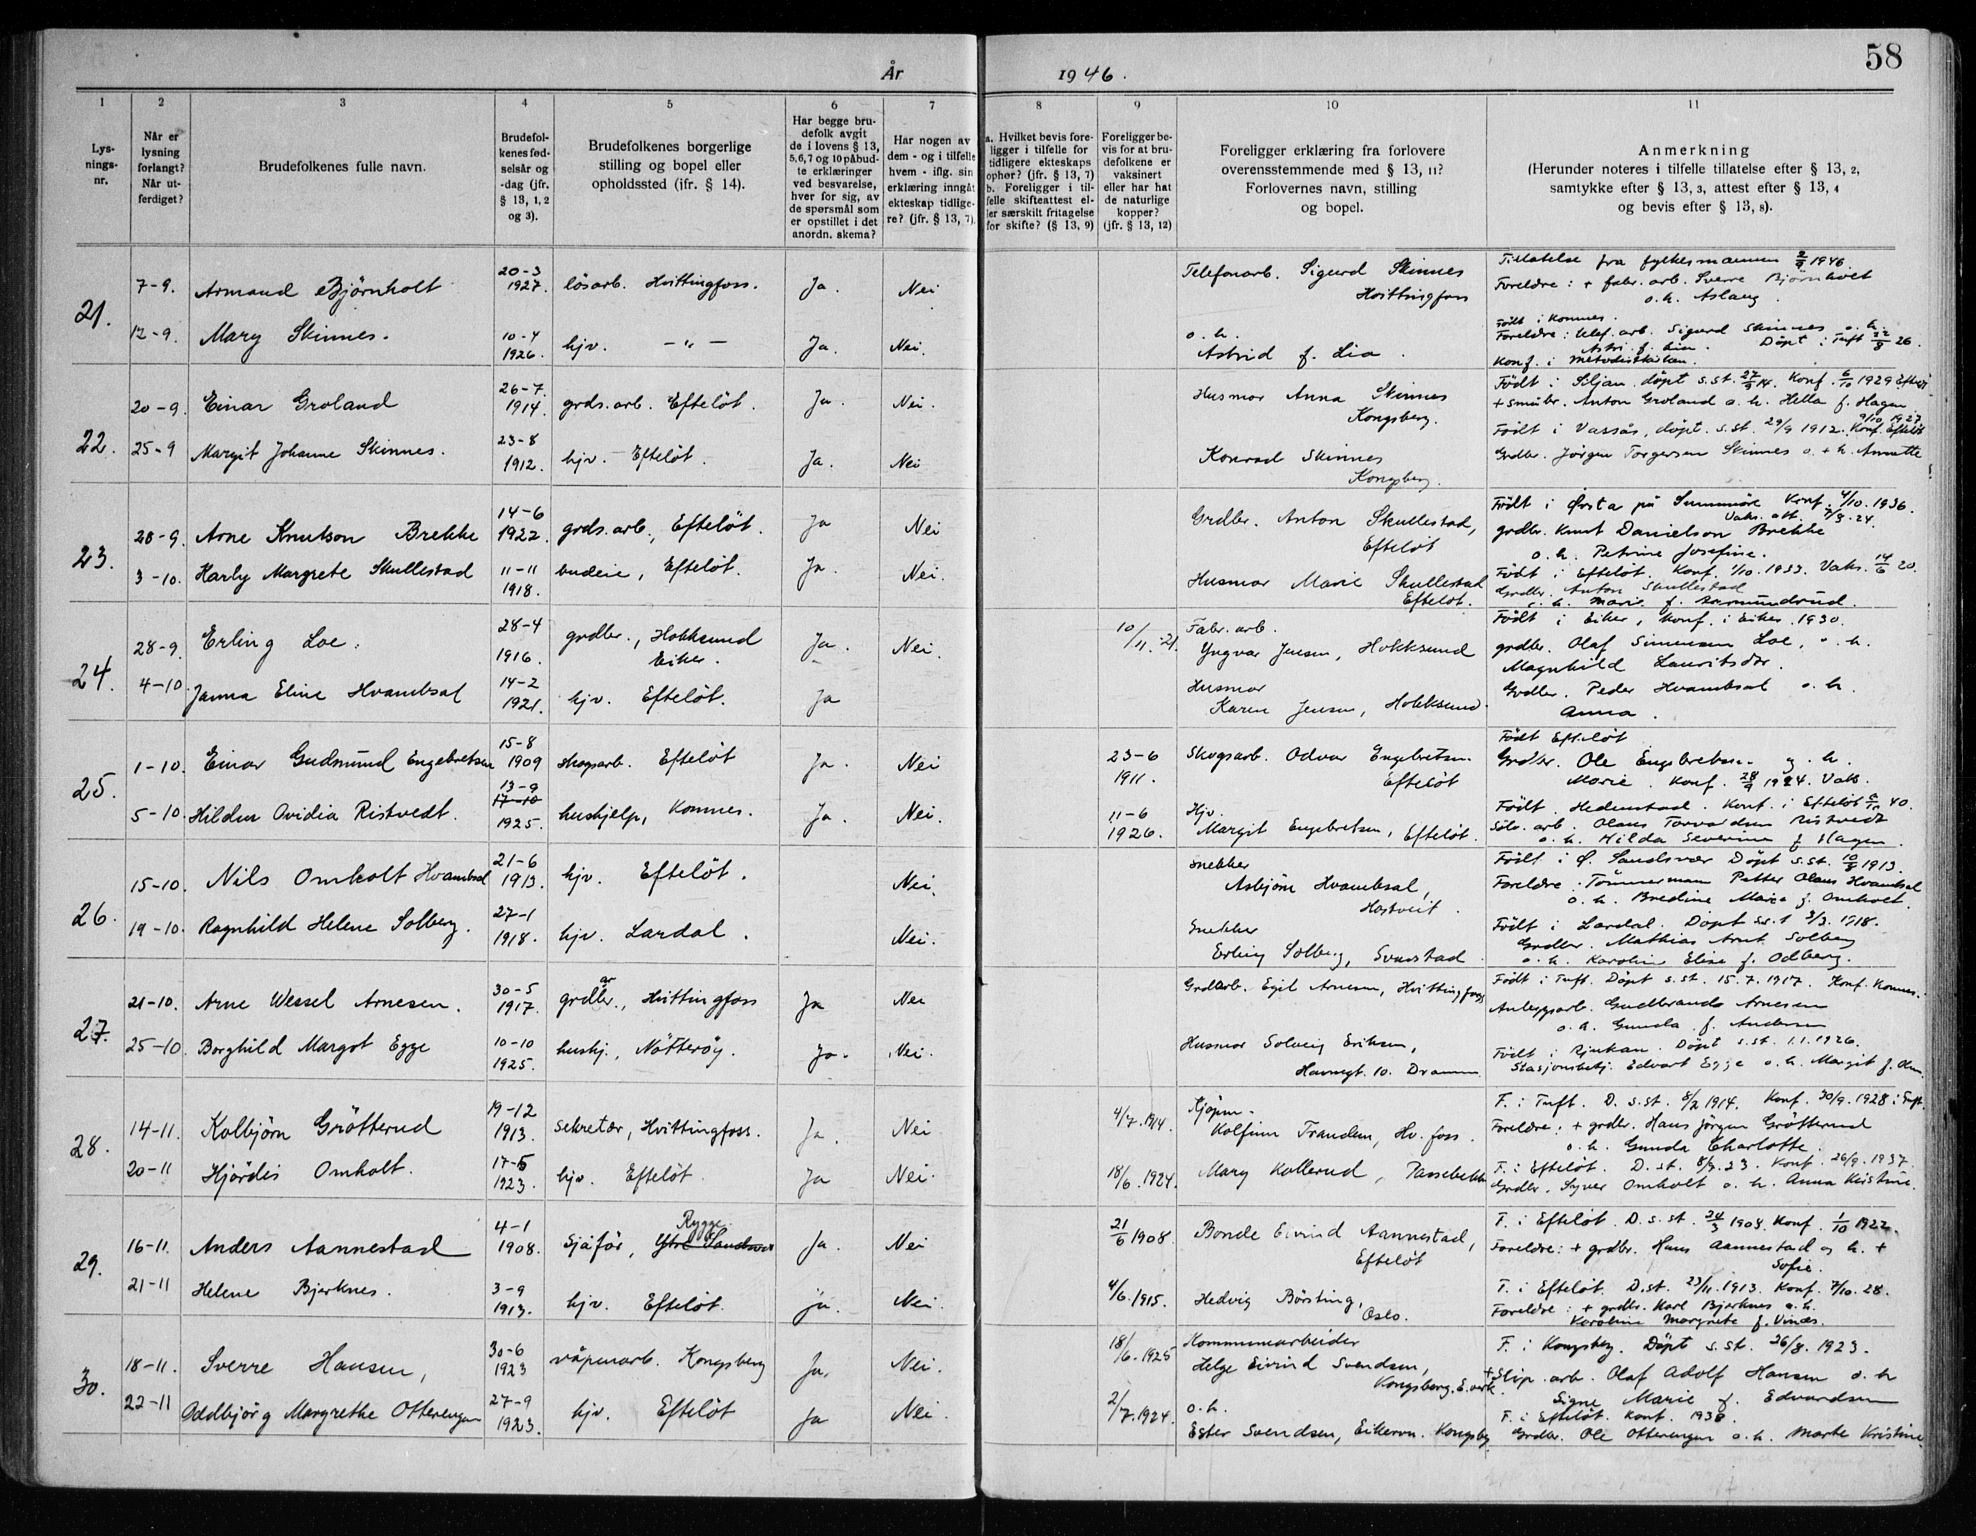 58
År 1946.
1 2 3 4 5 6 7 8 9 10 11
Lys-
nings-
nr.
Når er
lysning
forlangt?
Når ut-
ferdiget?
Brudefolkenes fulle navn.
Brudefol-
kenes fød-
selsår og
-dag (jfr.
§ 13, 1, 2
og 3).
Brudefolkenes borgerlige
stilling og bopel eller
opholdssted (ifr. § 14).
Har begge bru-
defolk avgit
de i lovens § 13,
5,6,7 og 10 påbud-
te erklæringer
ved besvarelse,
hver for sig, av
de spørsmål som
er opstillet i det
anordn. skema?
Har nogen av
dem - og i tilfelle
hvem - iflg. sin
erklæring inngått
ekteskap tidlige-
re? (jfr. § 13, 7).
a. Hvilket bevis fore-
ligger i tilfelle for
tidligere ekteskaps
ophør? (jfr. § 13, 7)
b. Foreligger i til-
felle skifteattest el-
ler særskilt fritagelse
for skifte? (§ 13, 9)
Foreligger be-
vis for at bru-
defolkene er
vaksinert
eller har hat
de naturlige
kopper?
(jfr. § 13, 12)
Foreligger erklæring fra forlovere
overensstemmende med § 13, 11?
Forlovernes navn, stilling
og bopel.
Anmerkning
(Herunder noteres i tilfelle tillatelse efter § 13, 2,
samtykke efter § 13, 3, attest efter § 13, 4
og bevis efter § 13, 8).
21.
7-9. Armand Bjørnholt 20-3 1927. løsarb. Hvittingfoss. Ja. Nei
Telefonarb. Sigurd Skinnes
Hvittingfoss
Tillatelse fra fylkesmannen 2/9 1946.
Foreldre: + fabr. arb. Sverre Bjørnholt
o. h. Aslaug.
12-9. Mary Skinnes. 10-4 1926. hjv. -"- Ja. Nei.
o. h.
Astrid f. Lia.
Født i Komnes.
Foreldre: telef. arb. Sigurd Skinnes o. h.
Astri f. Lia. Døpt i Tuft 22/8 26.
Konf. i metodistkirken.
22.
20-9. Einar Groland 26-7 1914. grds. arb. Efteløt. Ja. Nei.
Husmor Anna Skinnes
Kongsberg.
Født i Siljan. døpt s.st. 27/9 14. Konf. 6/10 1929 Efteløt
+ småbr. Anton Groland o. h. Hella f. Hagen
25-9 Margit Johanne Skinnes. 23-8 1912. hjv. Efteløt. Ja. Nei
Konrad Skinnes
Kongsberg.
Født i Vassås, døpt. s.st. 29/9 1912. Konf. Efteløt 9/10 1927
Grdbr. Jørgen Torgersen Skinnes o. + h. Annette
23.
28-9. Arne Knutson Brekke 14-6 1922. grds. arb., Efteløt. Ja Nei
Grdbr. Anton Skullestad,
Efteløt
Født i Ørsta på Sunnmøre Konf. 4/10. 1936.
Vaks. att. 7/8. 24.
grdbr. Knut Danielson Brekke
o. h. Petrine Josefine.
3-10. Harly Margrete Skullestad 11-11 1918. budeie, Efteløt. Ja. Nei.
Husmor Marie Skullestad
Efteløt.
Født i Efteløt. Konf. 1/10. 1933. Vaks. 14/6 20.
Grdbr. Anton Skullestad
o. h. Marie f. Aasmundrud.
24.
28-9. Erling Loe. 28-4 1916. grdbr., Hokksund Eiker. Ja. Nei. 10/11.-21.
Fabr. arb.
Yngvar Jensen, Hokksund
Født i Eiker, Konf. i Eiker. 1930.
grdbr. Olaf Simensen Loe, o. h.
Magnhild Lauritsdtr.
4-10. Janna Eline Hvambsal 14-2 1921. hjv. Efteløt. Ja
Husmor
Karen Jensen, Hokksund.
Grdbr. Peder Hvambsal o. h.
Anna.
25.
1-10. Einar Gudmund Engebretsen 15-8 1909 skogsarb. Efteløt Ja. Nei 23-6 1911.
Skogsarb. Odvar Engebretsen
Efteløt
Født Efteløt
Grdbr. Ole Engebretsen og h.
Marie. Konf. 28/9 1924. Vaks.
5-10. Hildur Ovidia Ristvedt. 13-9 17-10 1925. hushjelp, Komnes. Ja. Nei. 11-6 1926.
Hjv.
Margit Engebretsen, Efteløt.
Født. Hedenstad. Konf. i Efteløt 40.
Sølv. arb. Olaus Torvardsen Ristvedt
o. h. Hilda Severine f. Hagen.
26.
15-10. Nils Omholt Hvambsal 21-6 1913. hjv. Efteløt. Nei.
snekker
Asbjørn Hvambsal,
Hostveit.
Født i Ø. Sandsvær Døpt s.st. 10/9 1913.
Foreldre: Tømmermann Petter Olaus Hvambsal
o. h. Bredine Marie f. Omholt.
19-10. Ragnhild Helene Solberg. 27-1 1918. hjv. Lardal. Nei.
Snekker
Erling Solberg, Svarstad
Født i Lardal. Døpt s.st 3/3. 1918.
Grdbr. Mathias Arnt Solberg
o. h. Karoline Elise f. Odberg.
27.
21-10. Arne Wessel Arnesen. 30-5 1917. grdbr. ar, Hvittingfoss Ja Nei
Grdarb. Egil Arnesen, Hvittingfoss
Født i Tuft. Døpt s.st. 15.7.1917. Konf. Komnes.
Anleggsarb. Gudbrand Arnesen
o. h. Gunda f. Andersen
25-10. Borghild Margot Egge 10-10 1925. hushj., Nøtterøy. Ja. Nei.
Husmor Solveig Eriksen,
Havnegt. 10. Drammen
Født i Rjukan. Døpt s.st. 1.1.1926.
Stasjonsbetj. Edvart Egge o. h. Margit f.
28.
14-11. Kolbjørn Grøtterud 19-12 1913. sekretær, Hvittingfoss. Ja. Nei 4/7. 1914.
Kjøpm.
Kolfinn Trandem, Hv. foss.
F. i Tuft. D. s.st. 8/2 1914. Konf. 30/9. 1928 i Tuft.
Foreldre: + grdbr. Hans Jørgen Grøtterud
o. h. Gunda Charlotte.
20-11 Hjørdis Omholt. 17-5 1923. hjv. Efteløt. Ja Nei. 18/6. 1924.
Mary Kollerud, Passebekk
F. i Efteløt. D. st. 8/7. 23. Konf. 26/9. 1937.
Grdbr. Syver Omholt o. h. Anna Kristine.
29.
16-11. Anders Aannestad 4-1 1908. sjåfør, Rygge Ytre Sandsvær Ja. Nei 21/6 1908.
Bonde Eivind Aannestad,
Efteløt
F. i Efteløt. D. s. st. 24/3 1908. Konf. 1/10 1922.
Foreldre: + grdbr. Hans Aannestad og h. +
Sofie.
21-11 Helene Bjerknes. 3-9 1913. hjv. Efteløt. ja. Nei. 4/6. 1915.
Hedvig Børsting,
Oslo.
F. i Efteløt. D. st. 23/11. 1913. Konf. 7/10. 28.
Foreldre: + grdbr. Karl Bjerknes o. h.
Karoline Margrete f. Vinæs.
30.
18-11. Sverre Hansen, 30-6 1923 våpenarb. Kongsberg Ja. Nei. 18/6. 1925
Kommunearbeider
Helge Eivind Svendsen,
Kongsberg. E.verk.
F. i Kongsberg. Døpt s.st. 26/8. 1923.
+ slip. arb. Olaf Adolf Hansen o. h
Signe Marie f. Edvardsen
22-11 Oddbjørg Margrethe Otterengen 27-9 1923. hjv. Efteløt Ja Nei. 2/7. 1924.
o. h.
Ester Svendsen, Eikervn. Kongsbg
F. i Efteløt. Konf. 1938.
Grdbr. Ole Otterengen o. h. Marte Kristine.